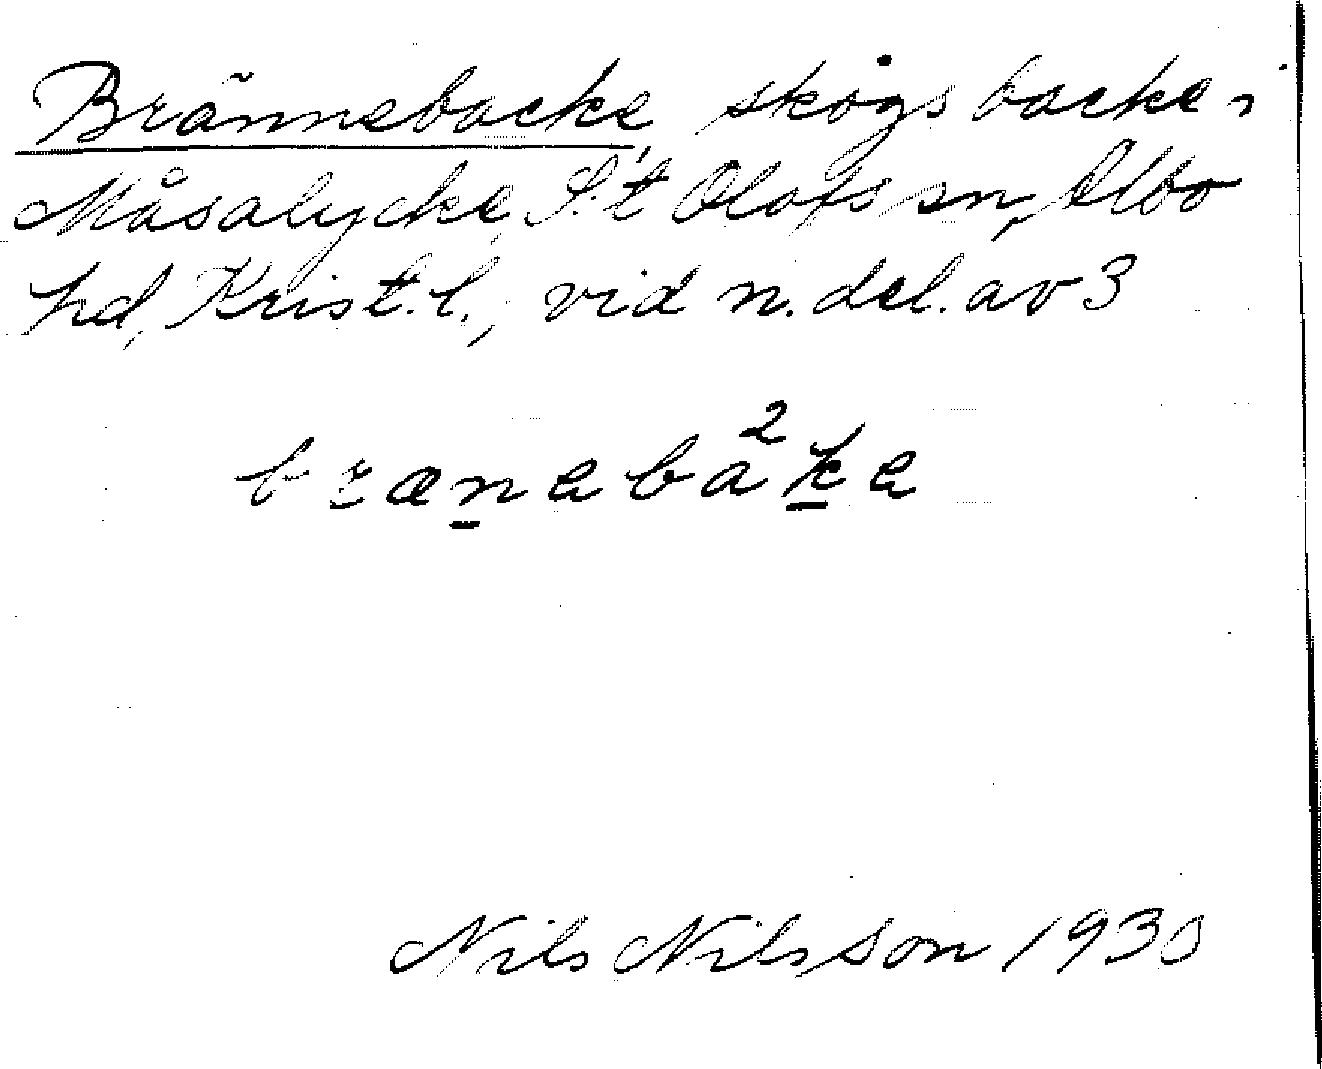 Brännebacke, skogsbacke i
Måsalycke, S:t Olofs sn, Albo
hd, Krist. l., vid n. del. av 3
brænəba²kə
Nils Nilsson 1930